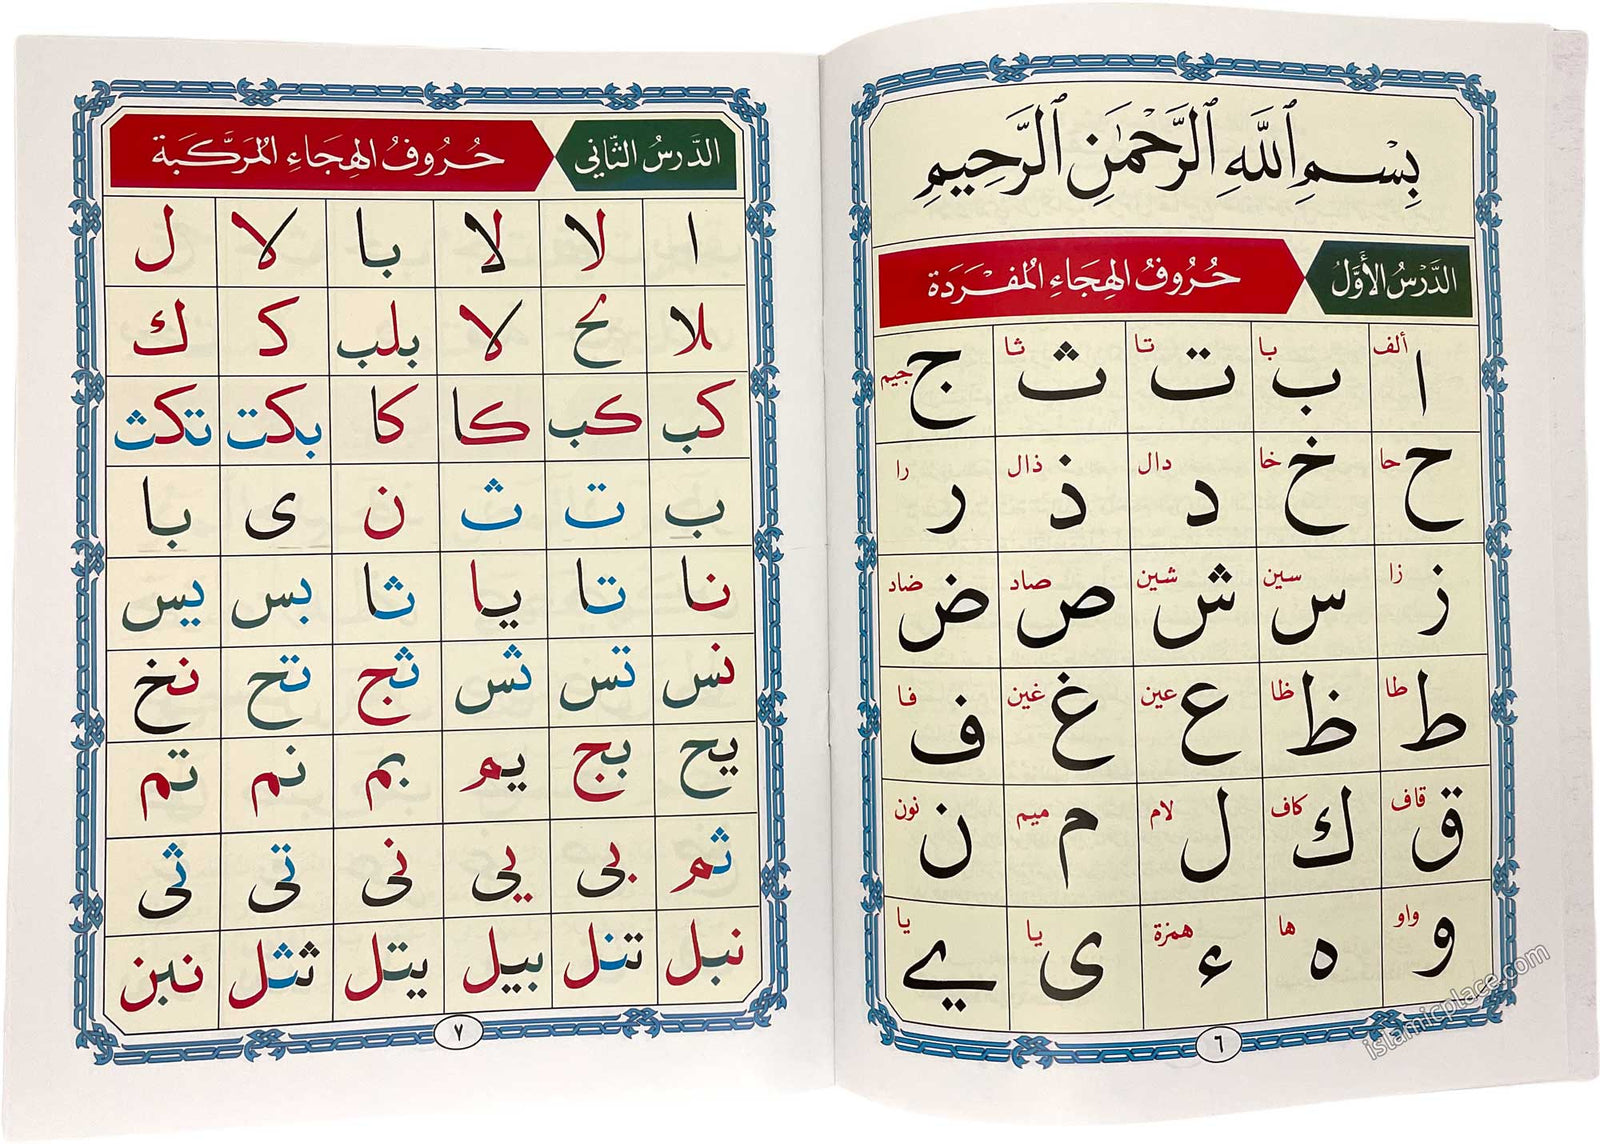 بِسْمِ ٱللَّهِ ٱلرَّحْمَٰنِ ٱلرَّحِيمِ
الدَّرْسُ الأَوَّلُ حُرُوفُ الهِجَاءِ المُفْرَدَة
ا ألف ب با ت تا ث ثا ج جيم
ح حا خ خا د دال ذ ذال ر را
ز زا س سين ش شين ص صاد ض ضاد
ط طا ظ ظا ع عين غ غين ف فا
ق قاف ك كاف ل لام م ميم ن نون
و واو ه ها ء همزة ى يا ے يا
٦
الدَّرسُ الثَّاني حُرُوفُ الهِجَاءِ المُرَكَّبَة
ا لا لا با لا ل
بلا لح لا بلب كـ ك
كب كب كا كا بكت تكث
ب ت ث ن ى با
نا تا يا ثا بس يس
نس تس ثس ثج تح نخ
يح بج يم بم نم تم
ثم بى يي نى تى ثى
نبل تنل بيل يتل ثثل نبن
٧
islamicplace.com